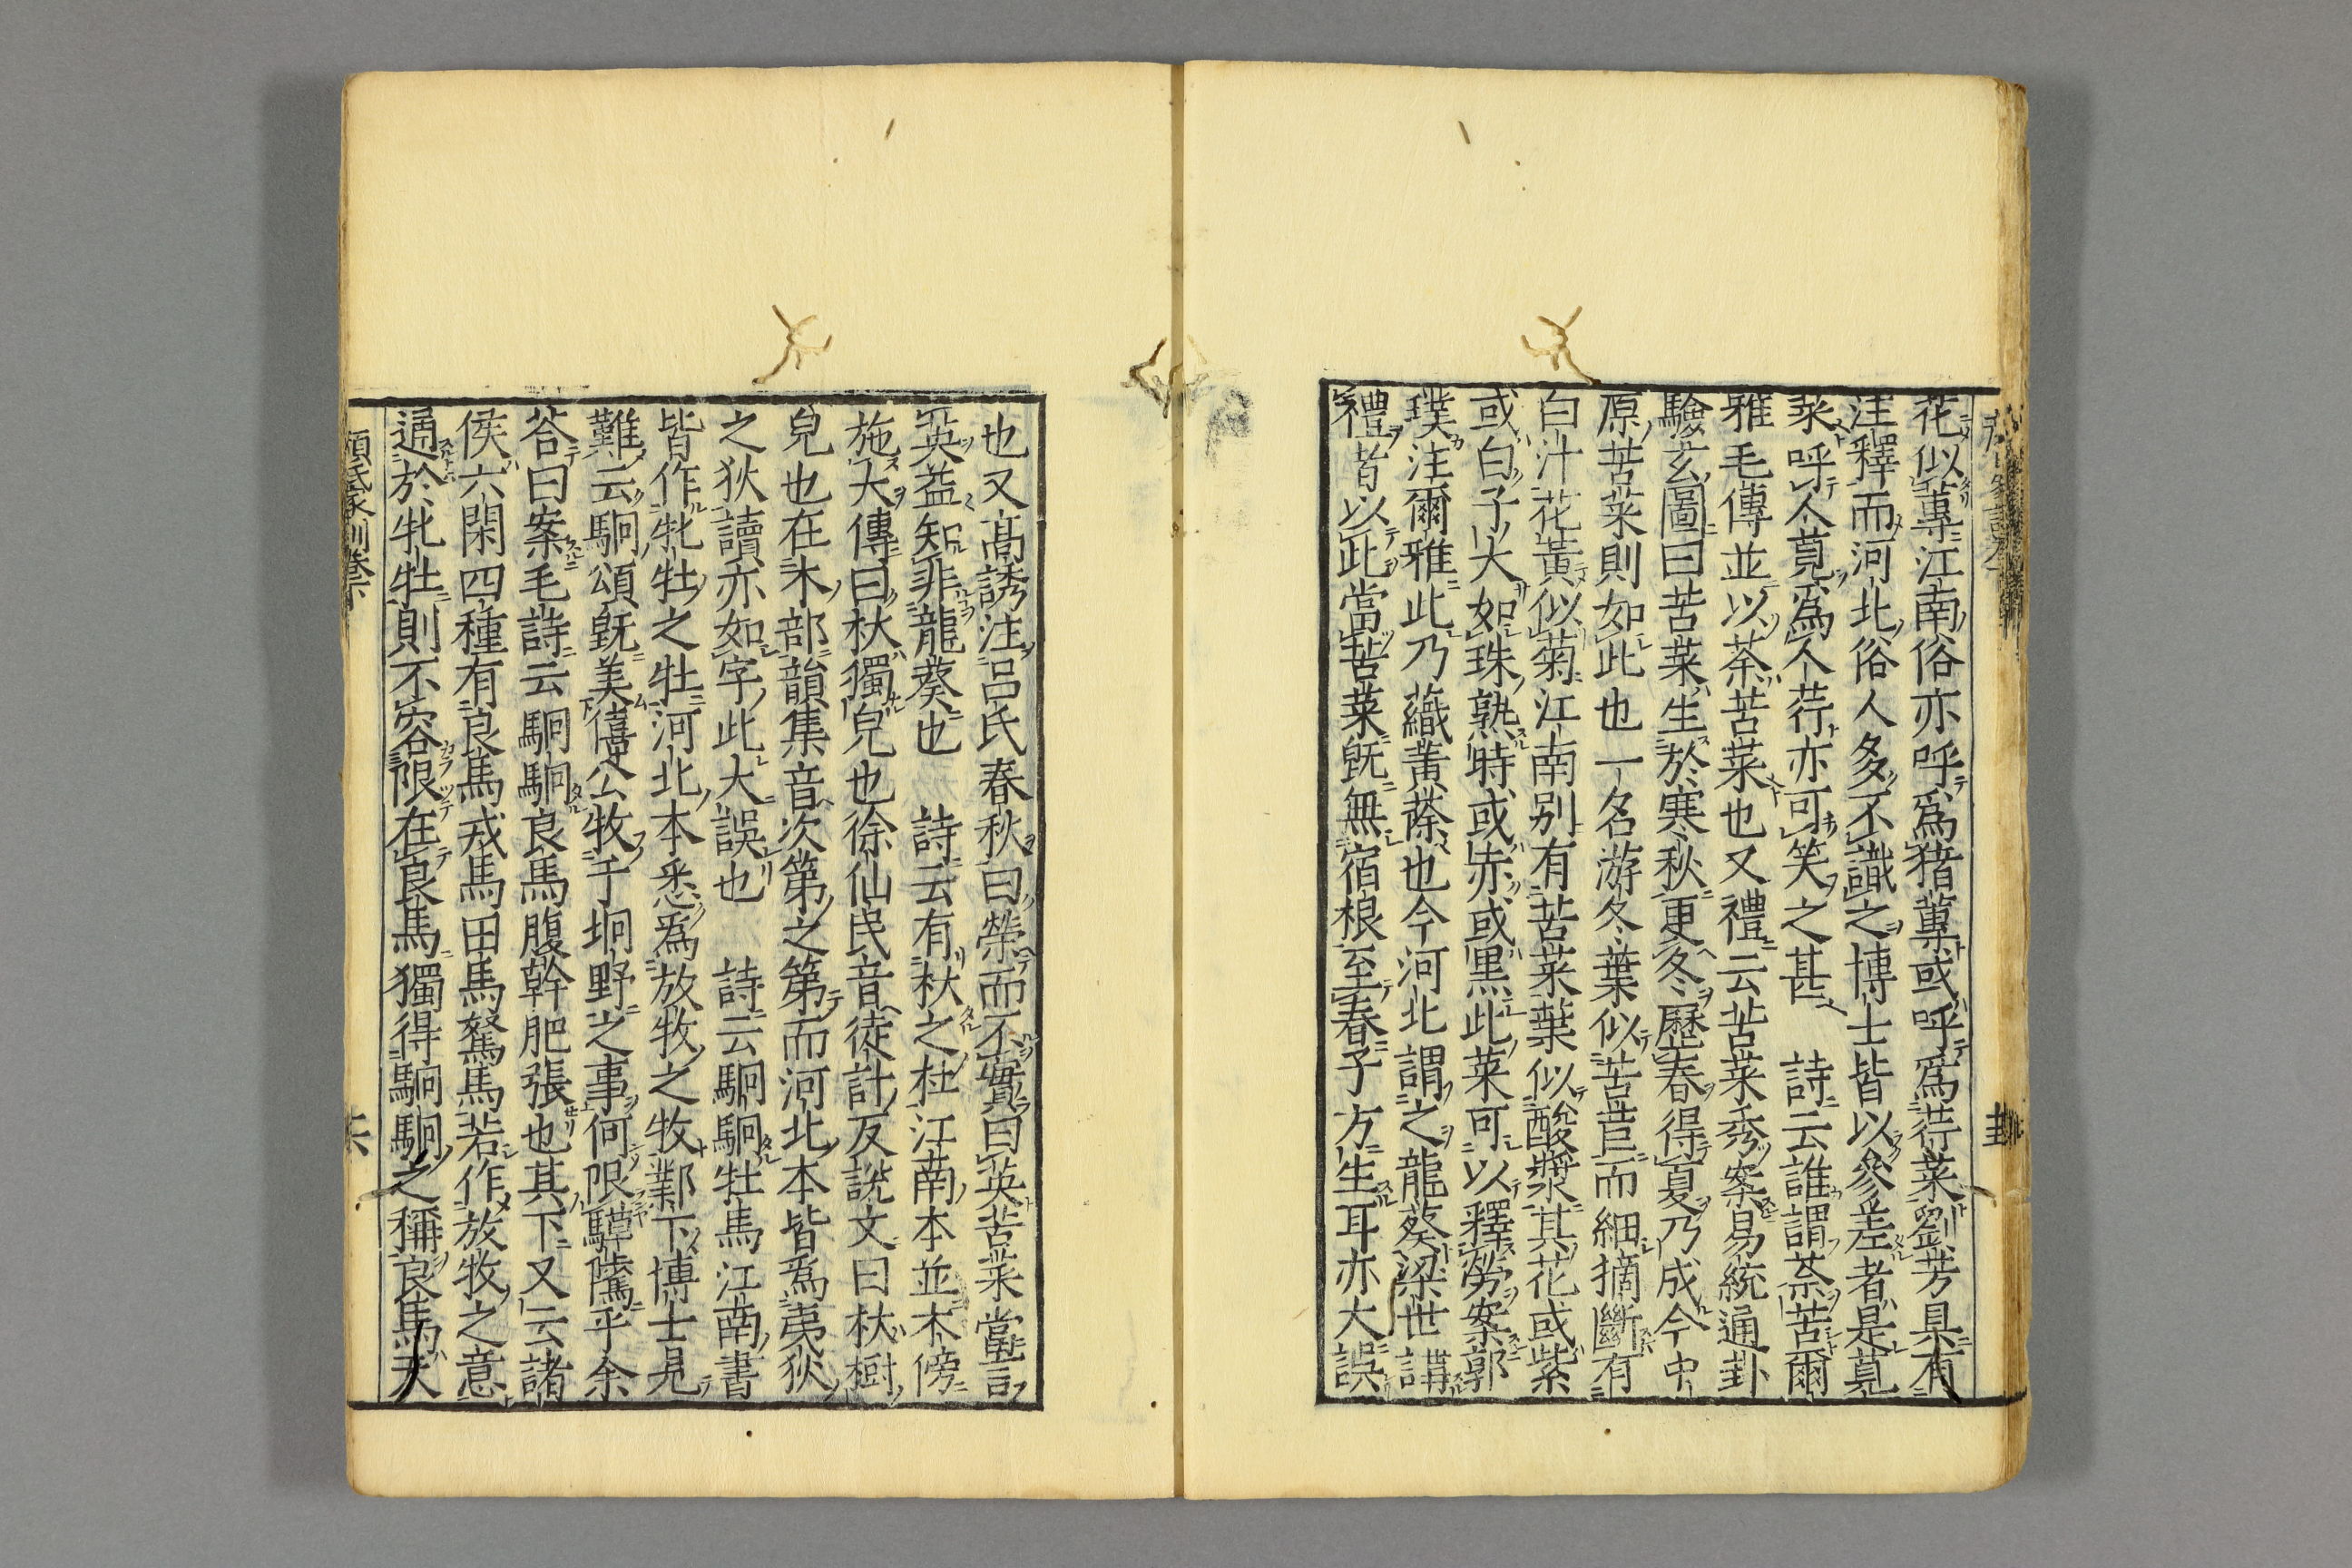 花似蓴江南俗亦呼爲猪蓴或呼爲荇菜劉芳具有
注釋而河北俗人多不識之博士皆以參差者是莧
菜呼人莧爲人荇亦可笑之甚　詩云誰謂荼苦爾
雅毛傳並以荼苦菜也又禮云苦菜秀案易統通卦
驗玄圖曰苦菜生於寒秋更冬歷春得夏乃成今中
原苦菜則如此也一名游冬葉似苦苣而細摘斷有
白汁花黃似菊江南别有苦菜葉似酸漿其花或紫
或白子大如珠熟時或赤或黑此菜可以釋勞案郭
璞注爾雅此乃蘵黃蒢也今河北謂之龍葵梁世講
禮者以此當苦菜旣無宿根至春子方生耳亦大誤
也又高誘注呂氏春秋曰榮而不實曰英苦菜當言
英益知非龍葵也　詩云有杕之杜江南本並木傍
施大傳曰杕獨皃也徐仙民音徒計反說文曰杕樹
皃也在木部韻集音次第之第而河北本皆爲夷狄
之狄讀亦如字此大誤也　詩云駉駉牡馬江南書
皆作牝牡之牡河北本悉爲放牧之牧鄴下博士見
難云駉頌旣美僖公牧于坰野之事何限騲騭乎余
荅曰案毛詩云駉駉良馬腹幹肥張也其下又云諸
侯六閑四種有良馬戎馬田馬駑馬若作放牧之意
通於牝牡則不容限在良馬獨得駉駉之稱良馬天
顔氏家訓卷下